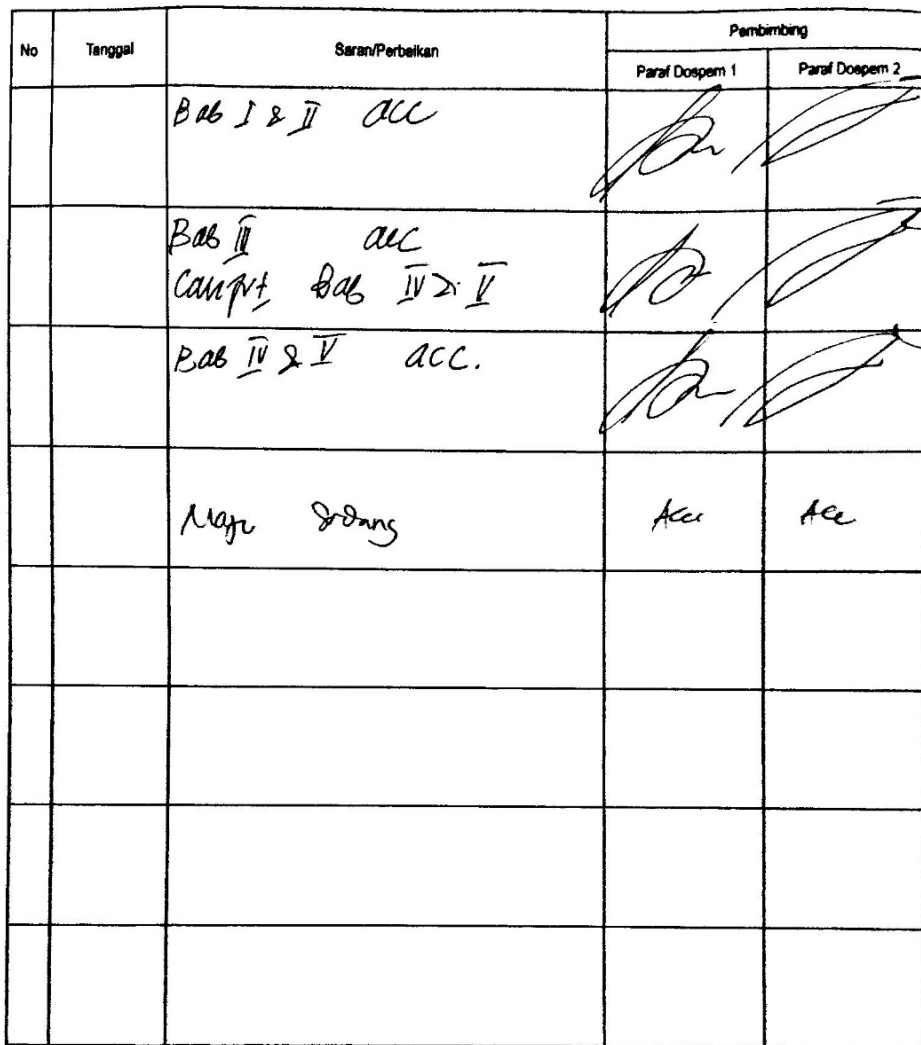 No Tanggal Saran/Perbaikan Pembimbing
Paraf Dospem 1 Paraf Dospem 2
Bab I & II acc
Bab III acc
Lanjut Bab IV & V
Bab IV & V acc.
Maju Sidang Acc Acc